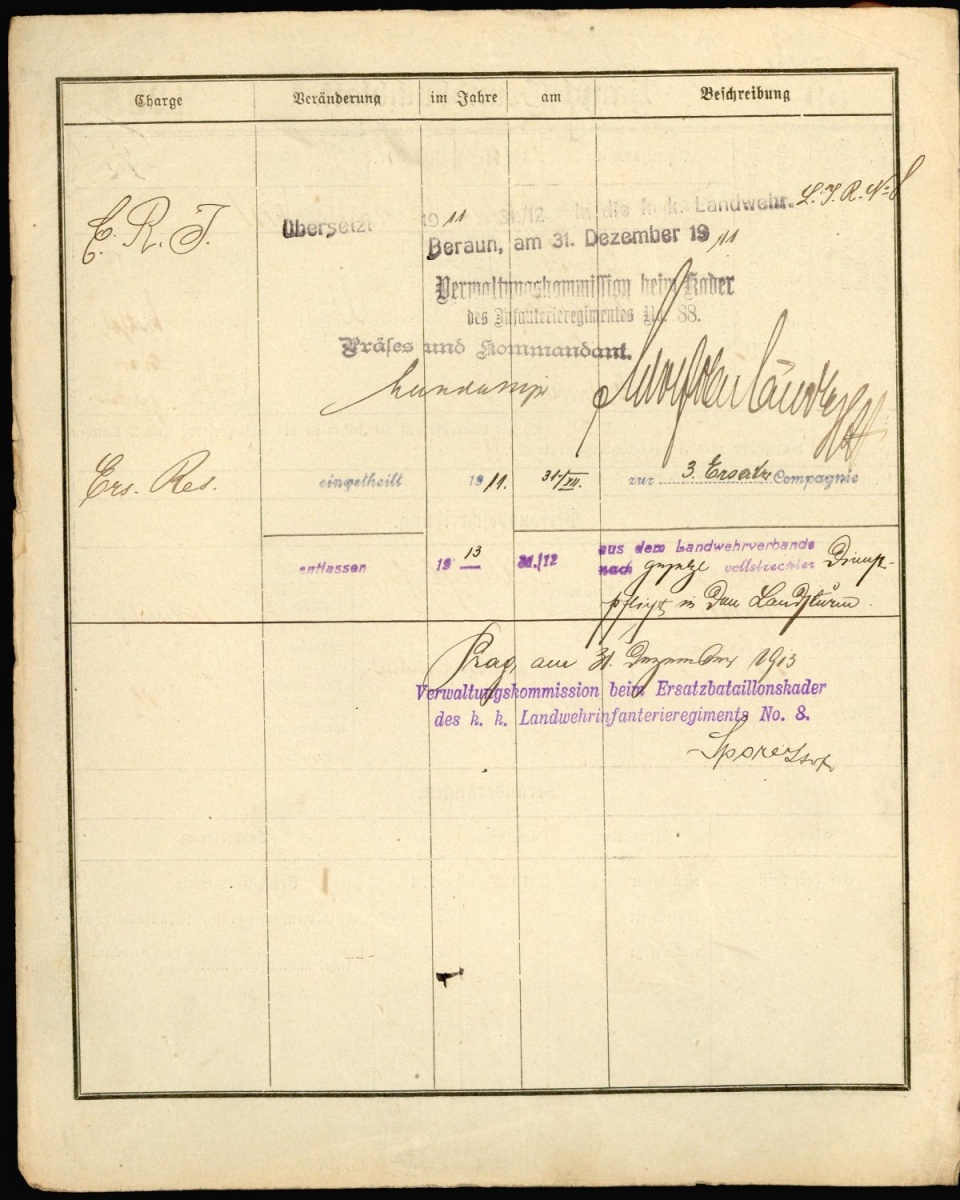 Charge Veränderung im Jahre am Beschreibung
E. R. I. Übersetzt 1911 31/12 in die k. k. Landwehr. L. I. R. No 8
Beraun, am 31. Dezember 1911
Verwaltungskommission beim Kader
des Infanterieregimentes No. 88.
Präses und Kommandant.
Ers. Res. eingetheilt 1911. 31/XII. zur 3. Ersatz Compagnie
entlassen 1913 31./12 aus dem Landwehrverbande
nach vollstreckter Dienst-
pflicht in den Landsturm.
Prag, am 31. Dezember 1913
Verwaltungskommission beim Ersatzbataillonskader
des k. k. Landwehrinfanterieregiments No. 8.